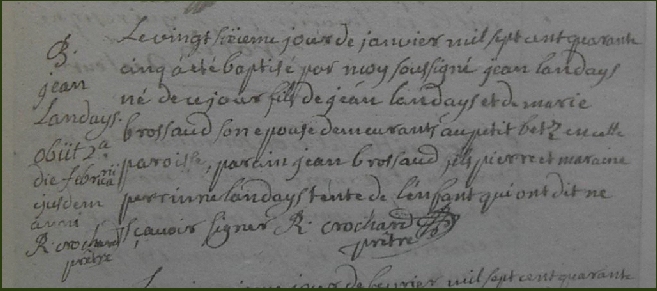 B.
jean
Landays.
obiit 2ª
die februarii
ejusdem
anni
R. crochard
prêtre
Le vingt sixieme jour de janvier mil sept cent quarante
cinq a eté baptisé par moy soussigné jean landays
né de ce jour fils de jean landays et de marie
brossaud son epouse demeurants au petit betz en cette
paroisse, parain jean brossaud, fils pierre et maraine
perrinne landays tente de l'enfant qui ont dit ne
sçavoir signer R. crochard
prêtre
jour de fevrier mil sept cent quarante